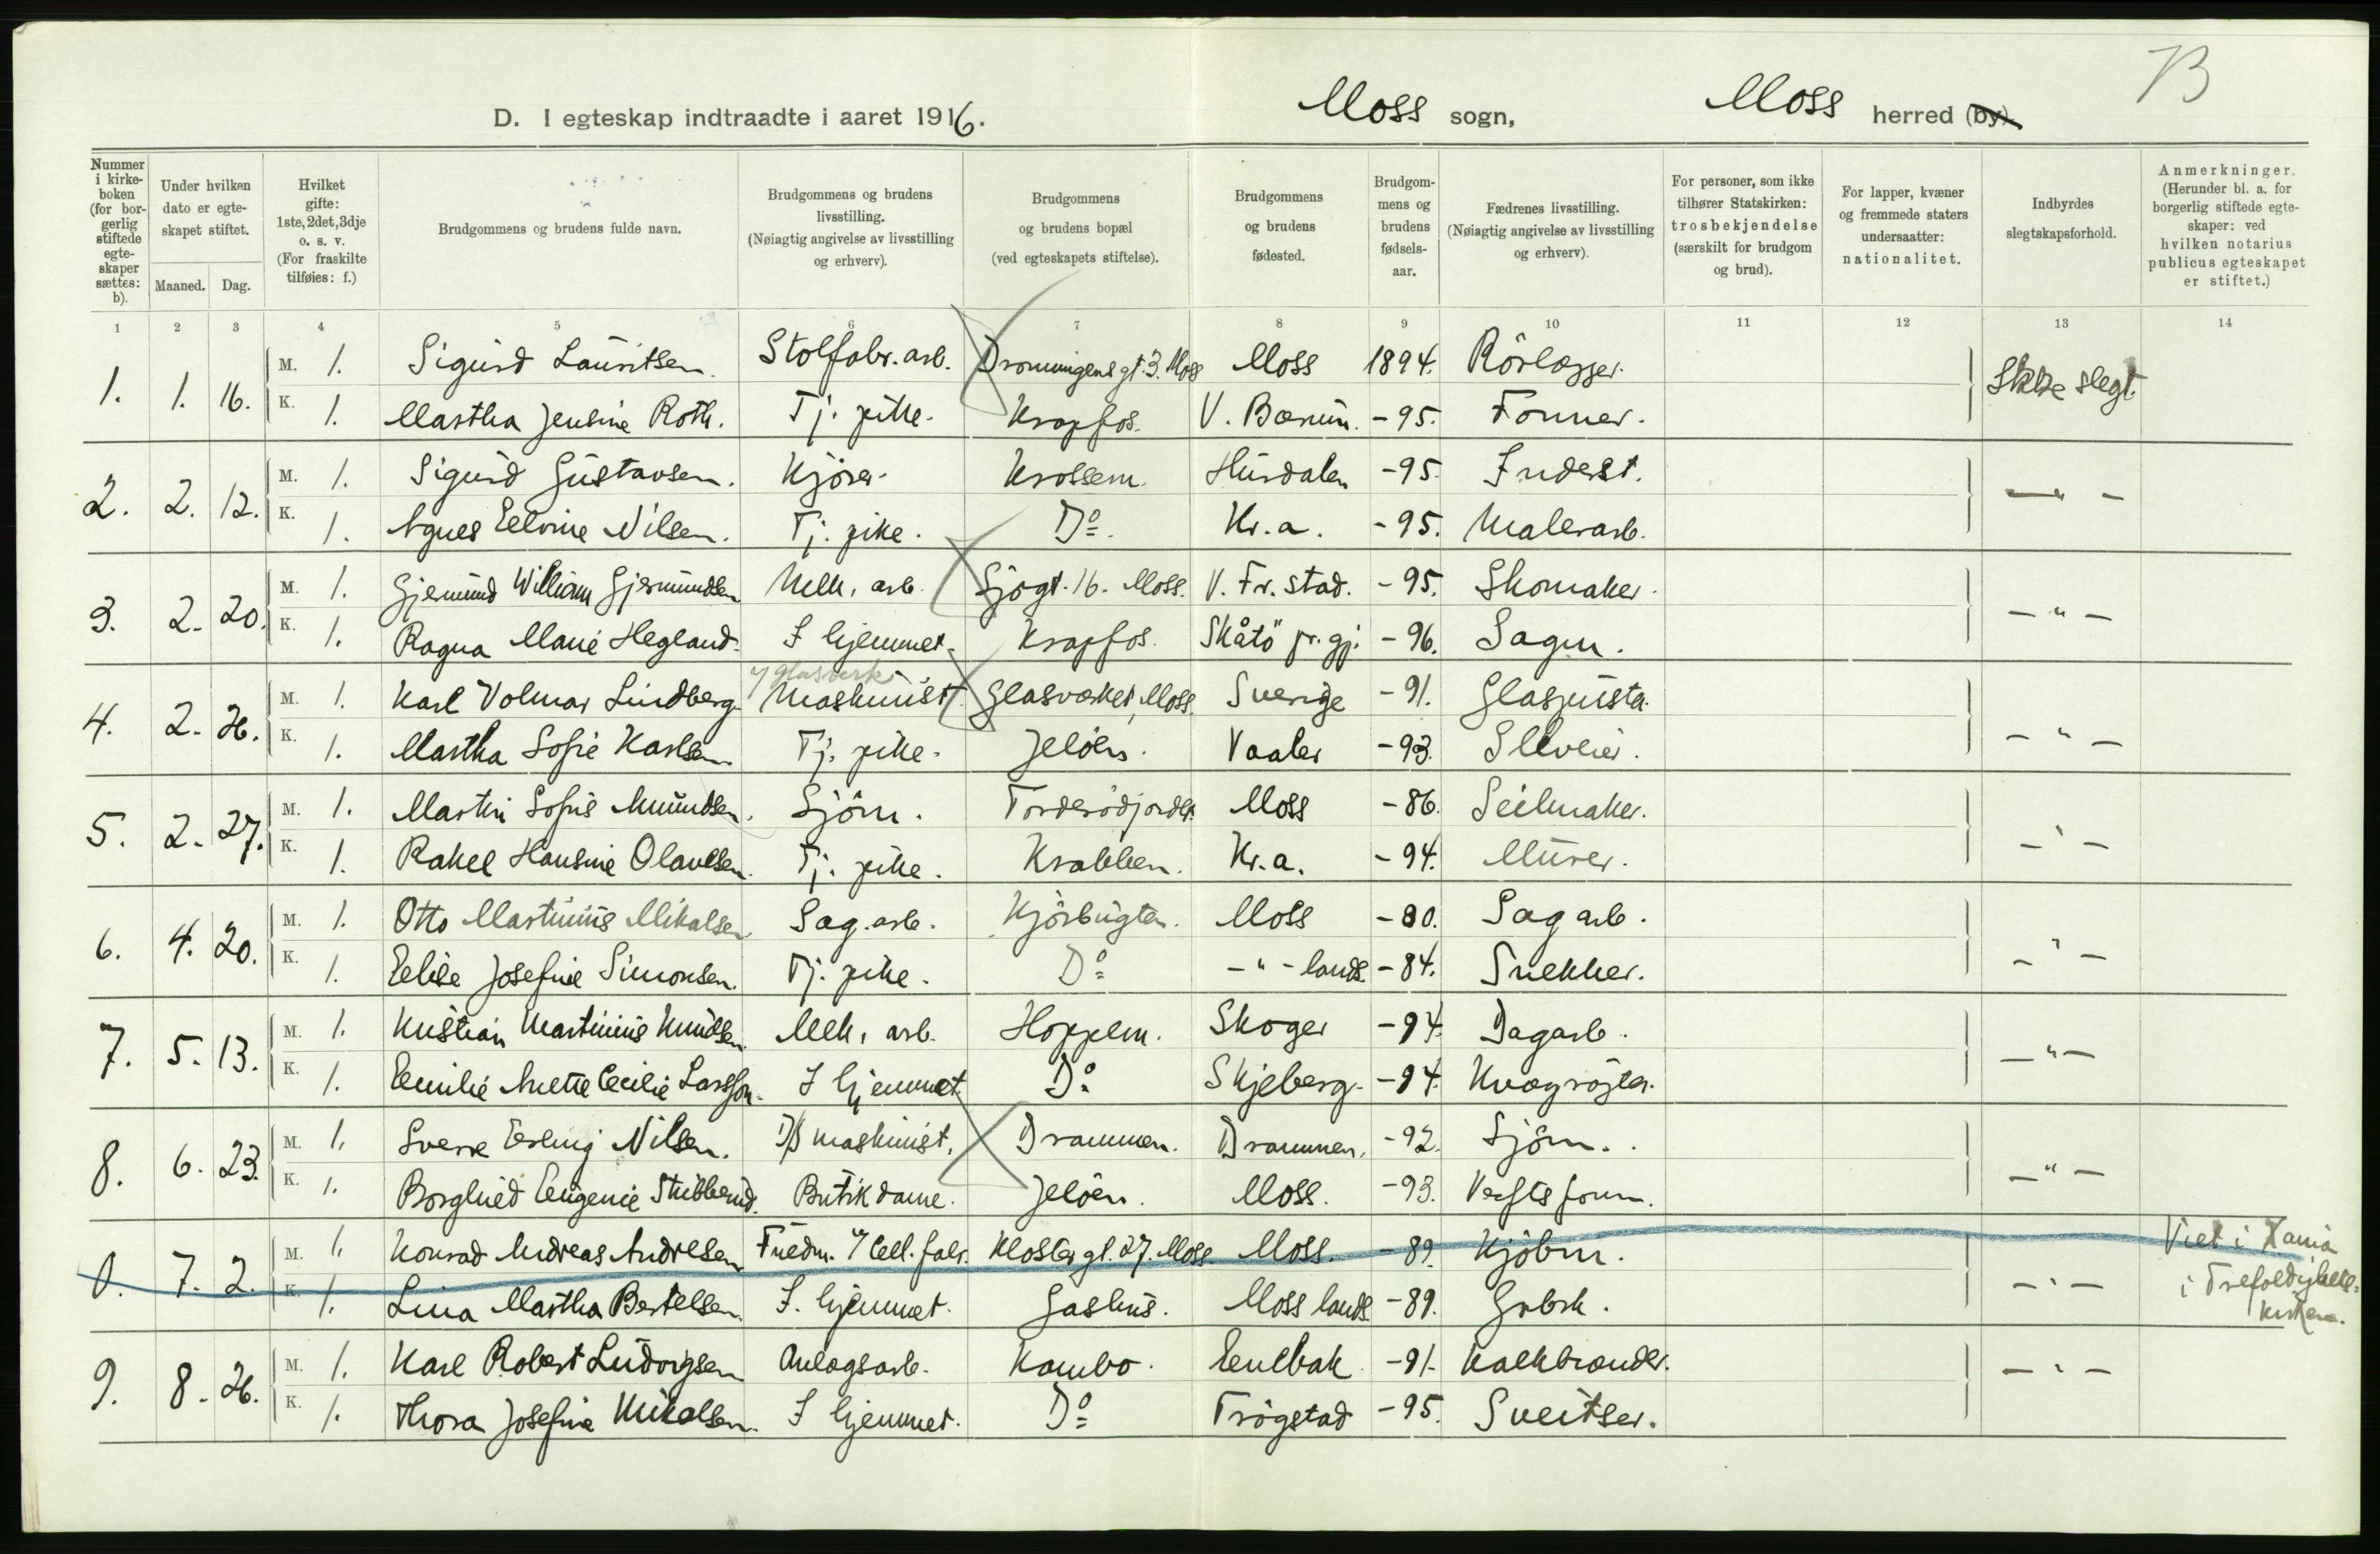 B
D. I egteskap indtraadte i aaret 1916. Moss sogn, Moss herred (by)
Nummer i kirkeboken (for borgerlig stiftede egteskaper sættes: b). Under hvilken dato er egteskapet stiftet. Maaned. Dag. Hvilket gifte: 1ste, 2det, 3dje o. s. v. (For fraskilte tilføies: f.) Brudgommens og brudens fulde navn. Brudgommens og brudens livsstilling. (Nøiagtig angivelse av livsstilling og erhverv). Brudgommens og brudens bopæl (ved egteskapets stiftelse). Brudgommens og brudens fødested. Brudgommens og brudens fødselsaar. Fædrenes livsstilling. (Nøiagtig angivelse av livsstilling og erhverv). For personer, som ikke tilhører Statskirken: trosbekjendelse (særskilt for brudgom og brud). For lapper, kvæner og fremmede staters undersaatter: nationalitet. Indbyrdes slegtskapsforhold. Anmerkninger. (Herunder bl. a. for borgerlig stiftede egteskaper: ved hvilken notarius publicus egteskapet er stiftet.)
1 2 3 4 5 6 7 8 9 10 11 12 13 14
1. 1. 16. M. 1. Sigurd Lauritsen. Stolfabr. arb. Dronningens gt. 3. Moss Moss 1894. Rörlægger. Ikke slegt.
K. 1. Martha Jensine Roth. Tj. pike. Krapfos. V. Bærum. -95. Former.
2. 2. 12. M. 1. Sigurd Gustavsen. Kjörer. Krossern. Hurdalen -95. Inderst. - " -
K. 1. Agnes Elvine Nilsen. Tj. pike. Do. Kr.a. -95. Malerarb.
3. 2. 20. M. 1. Gjermund William Gjermundsen Mek. arb. Sjögt. 16. Moss. V. Fr. stad. -95. Skomaker. - " -
K. 1. Ragna Marie Hegland. I hjemmet. Krapfos. Skåtö pr. gj. -96. Sagm.
4. 2. 26. M. 1. Karl Volmar Lindberg Maskinist v/ Glasverk Glasværket, Moss. Sverige -91. Glaspuster. - " -
K. 1. Martha Sofie Karlsen Tj. pike. Jelöen. Vaaler -93. Selveier.
5. 2. 27. M. 1. Martin Sofus Amundsen. Sjöm. Torderödjordet Moss -86. Seilmaker. - " -
K. 1. Rakel Hansine Olavesen. Tj. pike. Krabben. Kr.a. -94. Murer.
6. 4. 20. M. 1. Otto Martinius Mikalsen Sag. arb. Kjörbugten. Moss -80. Sag arb. - " -
K. 1. Elise Josefine Simonsen. Tj. pike. Do - " - lands. -84. Snekker.
7. 5. 13. M. 1. Kristian Martinius Knudsen Mek. arb. Hoppern. Skoger -94. Dagarb. - " -
K. 1. Emilie Anette Cecilie Larsson. I hjemmet Do Skjeberg. -94. Kvægrögter.
8. 6. 23. M. 1. Sverre Erling Nilsen. D/S maskinist. Drammen. Drammen. -92. Sjöm. - " -
K. 1. Borghild Eugenie Stibberud. Butikdame. Jelöen. Moss. -93. Verftsform.
0. 7. 2. M. 1. Konrad Andreas Andresen Fuedm. v/ Cell. fabr. Kloster gt. 27. Moss. Moss. -89. Kjöbm. - " - Viet i Xania i Trefoldighets-kirken.
K. 1. Lina Martha Bertelsen I. hjemmet. Gashus. Moss lands. -89. Grbrk.
9. 8. 26. M. 1. Karl Robert Ludvigsen Anlægsarb. Kambo. Enebak -91. Kalkbrænder. - " -
K. 1. Thora Josefine Mikalsen. I hjemmet. Do Trögstad -95. Sveitser.